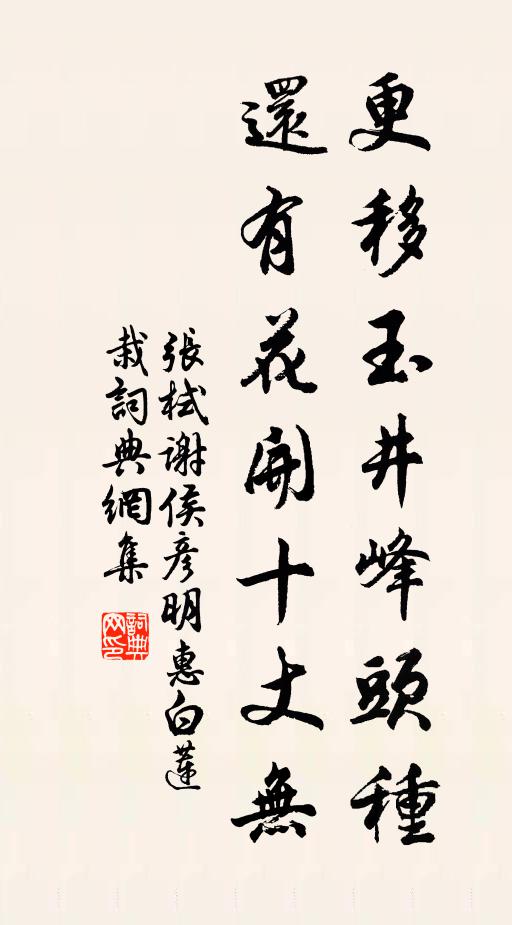 更移玉井峰頭種
還有花開十丈無
張栻谢侯彦明惠白蓮
栽詞典網集
詞典
网印